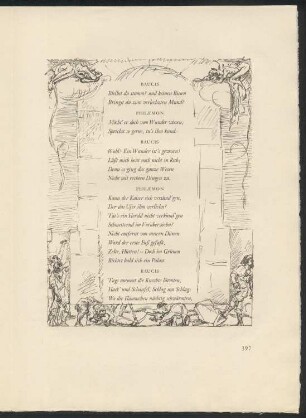 BAUCIS
Bleibst du stumm? und keinen Bissen
Bringst du zum verlechzten Mund?
PHILEMON
Möcht' er doch vom Wunder wissen;
Sprichst so gerne, tu's ihm kund.
BAUCIS
Wohl! Ein Wunder ist's gewesen!
Läßt mich heut noch nicht in Ruh;
Denn es ging das ganze Wesen
Nicht mit rechten Dingen zu.
PHILEMON
Kann der Kaiser sich versünd'gen,
Der das Ufer ihm verliehn?
Tät's ein Herold nicht verkünd'gen
Schmetternd im Vorüberziehn?
Nicht entfernt von unsern Dünen
Ward der erste Fuß gefaßt,
Zelte, Hütten! — Doch im Grünen
Richtet bald sich ein Palast.
BAUCIS
Tags umsonst die Knechte lärmten,
Hack' und Schaufel, Schlag um Schlag;
Wo die Flämmchen nächtig schwärmten,
197